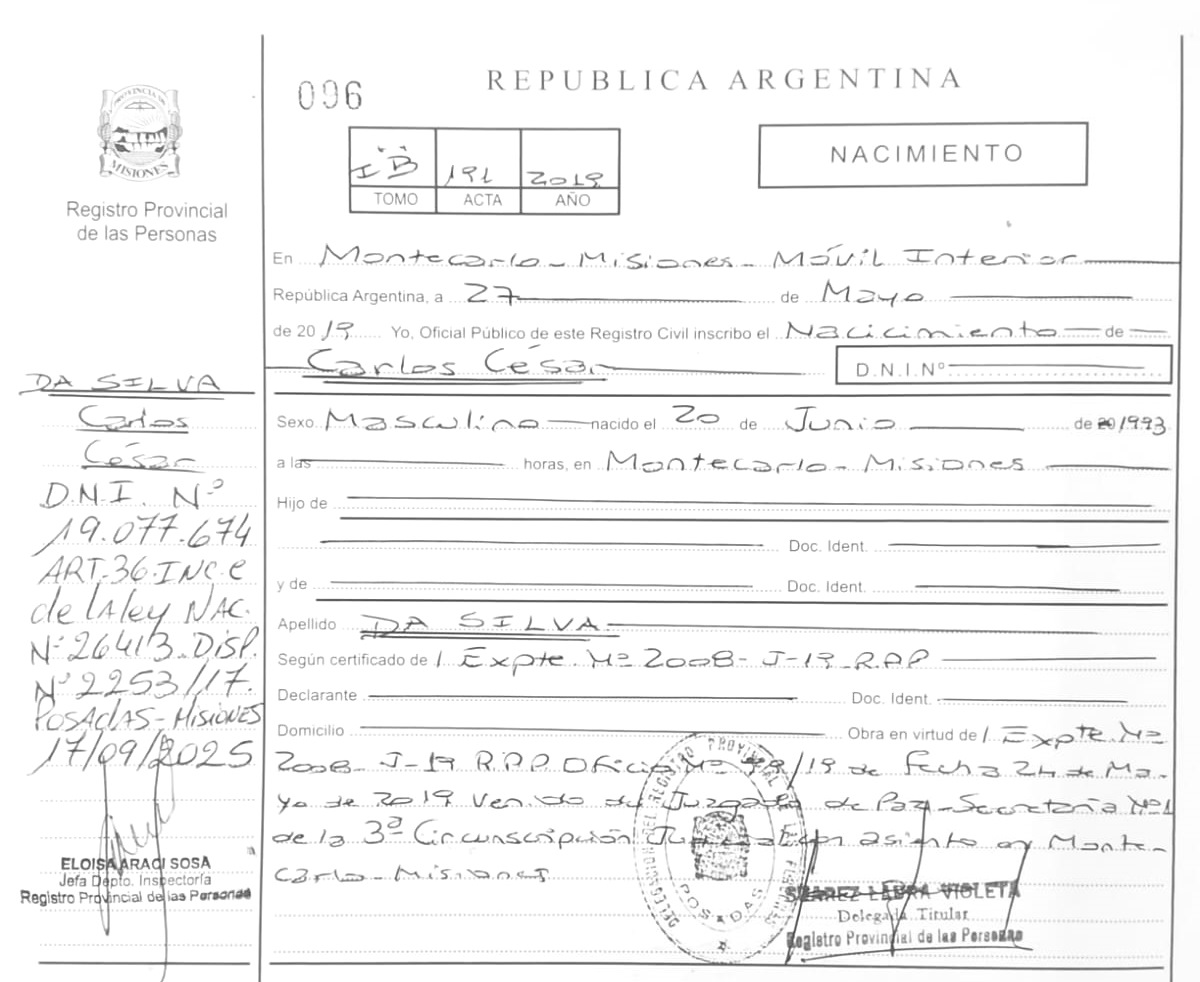 PROVINCIA DE
MISIONES
Registro Provincial
de las Personas
096
REPUBLICA ARGENTINA
I B 191 2019
TOMO ACTA AÑO
NACIMIENTO
En Montecarlo - Misiones - Móvil Interior
República Argentina, a 27 de Mayo
de 2019 Yo, Oficial Público de este Registro Civil inscribo el Nacicimiento de
Carlos César
D.N.I.Nº
Sexo Masculino nacido el 20 de Junio de 20/1993
a las horas, en Montecarlo - Misiones
Hijo de
Doc. Ident.
y de Doc. Ident.
Apellido DA SILVA
Según certificado de / Expte. Nº 2008 - J-19 - R.P.P
Declarante Doc. Ident.
Domicilio Obra en virtud de / Expte. Nº
2008 - J-19 R.P.P Oficio Nº /19 de fecha 24 de Ma-
yo de 2019 Venido del Juzgado de Paz - Secretaria Nº1
de la 3ª Circunscripción con asiento en Monte-
Carlo - Misiones
DA SILVA
Carlos
César
D.N.I. Nº
19.077.674
ART.36.INC.e
de la ley NAC.
Nº 26413. DISP.
Nº 2253/17.
POSADAS - MISIONES
17/09/2025
ELOISA ARACI SOSA
Jefa Depto. Inspectoría
Registro Provincial de las Personas
POSADAS
SUAREZ LABRA VIOLETA
Delegada Titular
Registro Provincial de las Personas